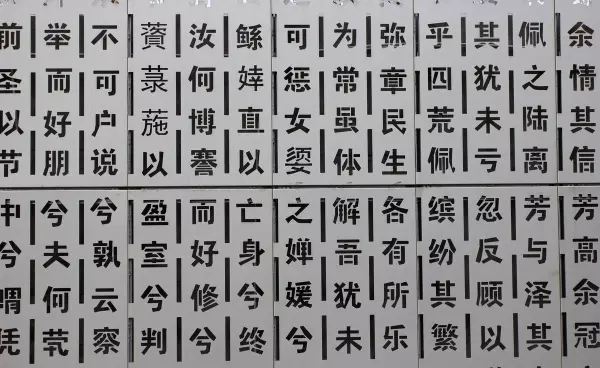 余情其信芳高余冠
佩之陆离芳与泽其
其犹未亏忽反顾以
乎四荒佩缤纷其繁
弥章民生各有所乐
为常虽体解吾犹未
可惩女媭之婵媛兮
鲧婞直以亡身兮终
汝何博謇而好修兮
薋菉葹以盈室兮判
不可户说兮孰云察
举而好朋兮夫何茕
前圣以节中兮喟凭